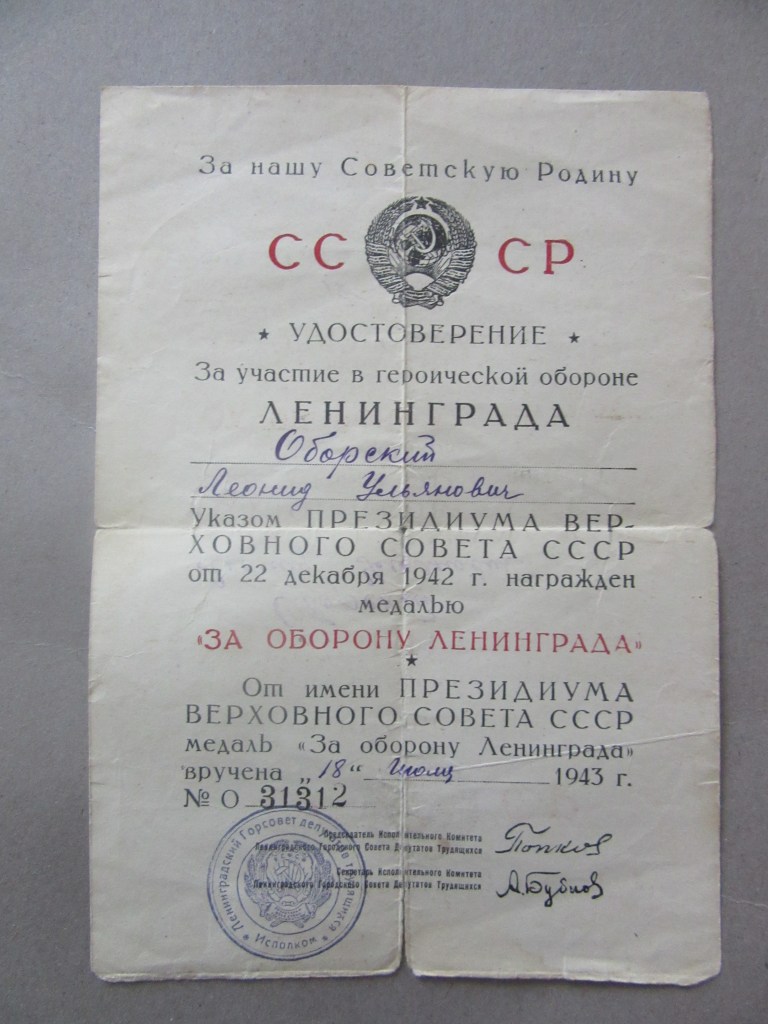 За нашу Советскую Родину
СССР
★ УДОСТОВЕРЕНИЕ ★
За участие в героической обороне
ЛЕНИНГРАДА
Оборский
Леонид Ульянович
Указом ПРЕЗИДИУМА ВЕР-
ХОВНОГО СОВЕТА СССР
от 22 декабря 1942 г. награжден
медалью
«ЗА ОБОРОНУ ЛЕНИНГРАДА»
★
От имени ПРЕЗИДИУМА
ВЕРХОВНОГО СОВЕТА СССР
медаль «За оборону Ленинграда»
вручена „18“ 1943 г.
№ О 31312
Председатель Исполнительного Комитета
Ленинградского Городского Совета Депутатов Трудящихся
Попков
Секретарь Исполнительного Комитета
Ленинградского Городского Совета Депутатов Трудящихся
А.Бубнов
Ленинградский Горсовет депутатов трудящихся
★ Исполком ★